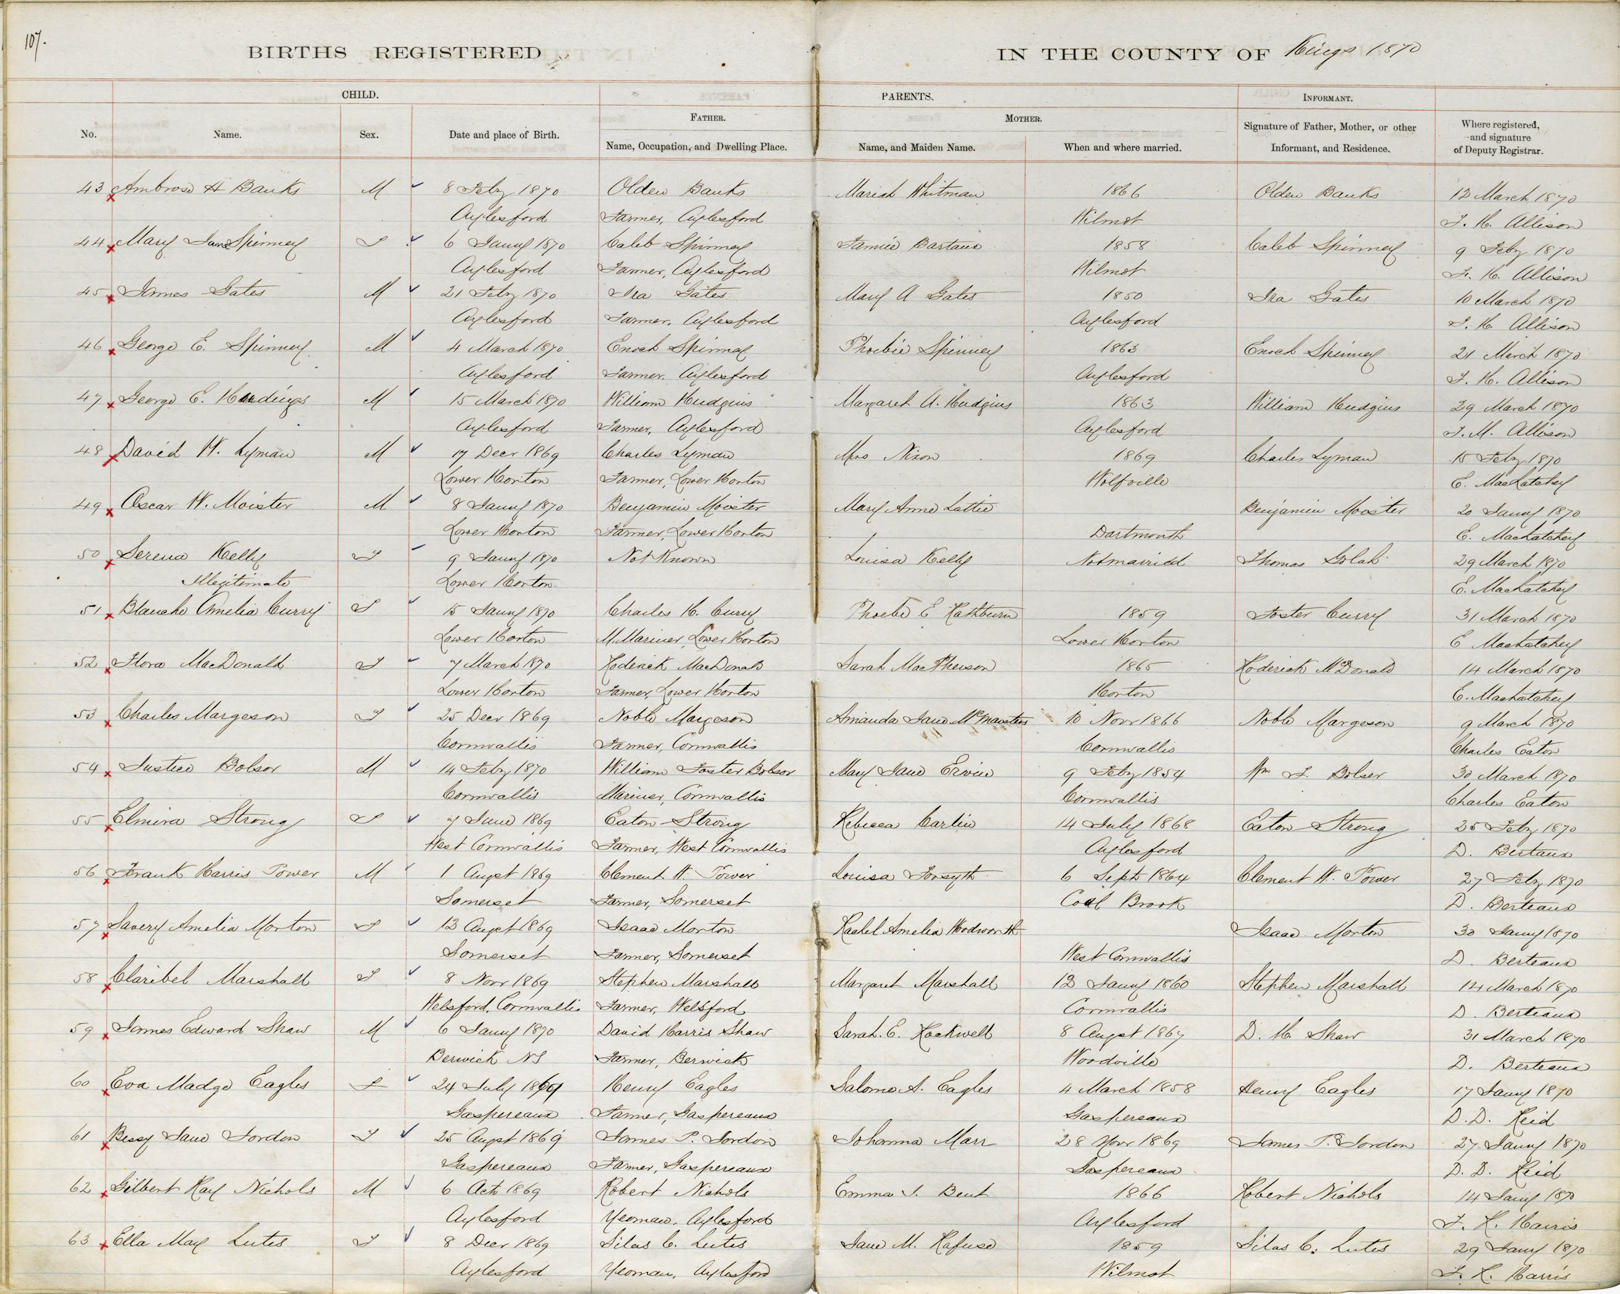 107.
BIRTHS REGISTERED IN THE COUNTY OF Kings 1870
CHILD. PARENTS. INFORMANT.
FATHER. MOTHER.
No. Name. Sex. Date and place of Birth. Name, Occupation, and Dwelling Place. Name, and Maiden Name. When and where married. Signature of Father, Mother, or other Informant, and Residence. Where registered, and signature of Deputy Registrar.
43 Ambrose H Banks M 8 Feby 1870 Olden Banks Mariah Whitman 1866 Olden Banks 12 March 1870
Aylesford Farmer, Aylesford Wilmot T. H. Allison
44 Mary Jane Spinney F 6 Jany 1870 Caleb Spinney 1858 Caleb Spinney 9 Feby 1870
Aylesford Farmer, Aylesford Wilmot T. H. Allison
45 James Gates M 21 Feby 1870 Ira Gates Mary A Gates 1850 Ira Gates 10 March 1870
Aylesford Farmer, Aylesford Aylesford T. H. Allison
46 George E. Spinney M 4 March 1870 Enoch Spinney Phoebie Spinney 1863 Enoch Spinney 21 March 1870
Aylesford Farmer, Aylesford Aylesford T. H. Allison
47 George E. M 15 March 1870 William Hudgins Margaret A. Hudgins 1863 William Hudgins 29 March 1870
Aylesford Farmer, Aylesford Aylesford T. M. Allison
48 David W. Lyman M 17 Decr 1869 Charles Lyman Mrs Nixon 1869 Charles Lyman 15 Feby 1870
Lower Horton Farmer, Lower Horton Wolfville E. MacLatchey
49 Oscar W. Moister M 8 Jany 1870 Benjamin Moister Mary Anne Benjamin Moister 20 Jany 1870
Lower Horton Farmer, Lower Horton Dartmouth E. MacLatchey
50 Serena Kelly F 9 Jany 1870 Not Known Louisa Kelly Not married Thomas 29 March 1870
Illegitimate Lower Horton E. MacLatchey
51 Blanche Amelia Curry F 15 Jany 1870 Charles H. Curry Phoebe E Rathburn 1859 Foster Curry 31 March 1870
Lower Horton M. Mariner, Lower Horton Lower Horton E MacLatchey
52 Flora MacDonald F 7 March 1870 Roderick MacDonald Sarah MacPherson 1865 Roderick McDonald 14 March 1870
Lower Horton Farmer, Lower Horton Horton E. MacLatchey
53 Charles Margeson F 25 Decr 1869 Noble Margeson Amanda Jane McMasters 10 Novr 1866 Noble Margeson 9 March 1870
Cornwallis Farmer, Cornwallis Cornwallis Charles Eaton
54 Justice Bolsor M 14 Feby 1870 William Foster Bolsor Mary Jane Ervin 9 Feby 1854 Wm F. Bolser 30 March 1870
Cornwallis Mariner, Cornwallis Cornwallis Charles Eaton
55 Elmira Strong F 7 June 1869 Eaton Strong Rebecca Carlin 14 July 1868 Eaton Strong 25 Feby 1870
West Cornwallis Farmer, West Cornwallis Aylesford D. Berteaux
56 Frank Harris Tower M 1 Augst 1869 Clement W. Tower Louisa Forsyth 6 Sept 1864 Clement W. Tower 27 Feby 1870
Somerset Farmer, Somerset Coal Brook D. Berteaux
57 Savery Amelia Morton F 13 Augst 1869 Isaac Morton Rachel Amelia Woodworth Isaac Morton 30 Jany 1870
Somerset Farmer, Somerset West Cornwallis D. Berteaux
58 Claribel Marshall F 8 Novr 1869 Stephen Marshall Margaret Marshall 13 Jany 1860 Stephen Marshall 14 March 1870
Welsford, Cornwallis Farmer, Welsford Cornwallis D. Berteaux
59 James Edward Shaw M 6 Jany 1870 David Harris Shaw Sarah E. Rockwell 8 Augst 1867 D. H. Shaw 31 March 1870
Berwick NS Farmer, Berwick Woodville D. Berteaux
60 Eva Madge Eagles F 24 July 1869 Henry Eagles Salome A. Eagles 4 March 1858 Henry Eagles 17 Jany 1870
Gaspereaux Farmer, Gaspereaux Gaspereaux D. D. Reid
61 Bessy Jane Jordon F 25 Augst 1869 James P. Jordon Johanna Marr 28 Novr 1869 James P. Jordon 27 Jany 1870
Gaspereaux Farmer, Gaspereaux Gaspereaux D. D. Reid
62 Gilbert Ray Nichols M 6 Octr 1869 Robert Nichols Emma J. Bent 1866 Robert Nichols 14 Jany 1870
Aylesford Yeoman, Aylesford Aylesford T. R. Harris
63 Ella May Lutes F 8 Decr 1869 Silas C. Lutes Jane M. Rafuse 1859 Silas C. Lutes 29 Jany 1870
Aylesford Yeoman, Aylesford Wilmot T. R. Harris